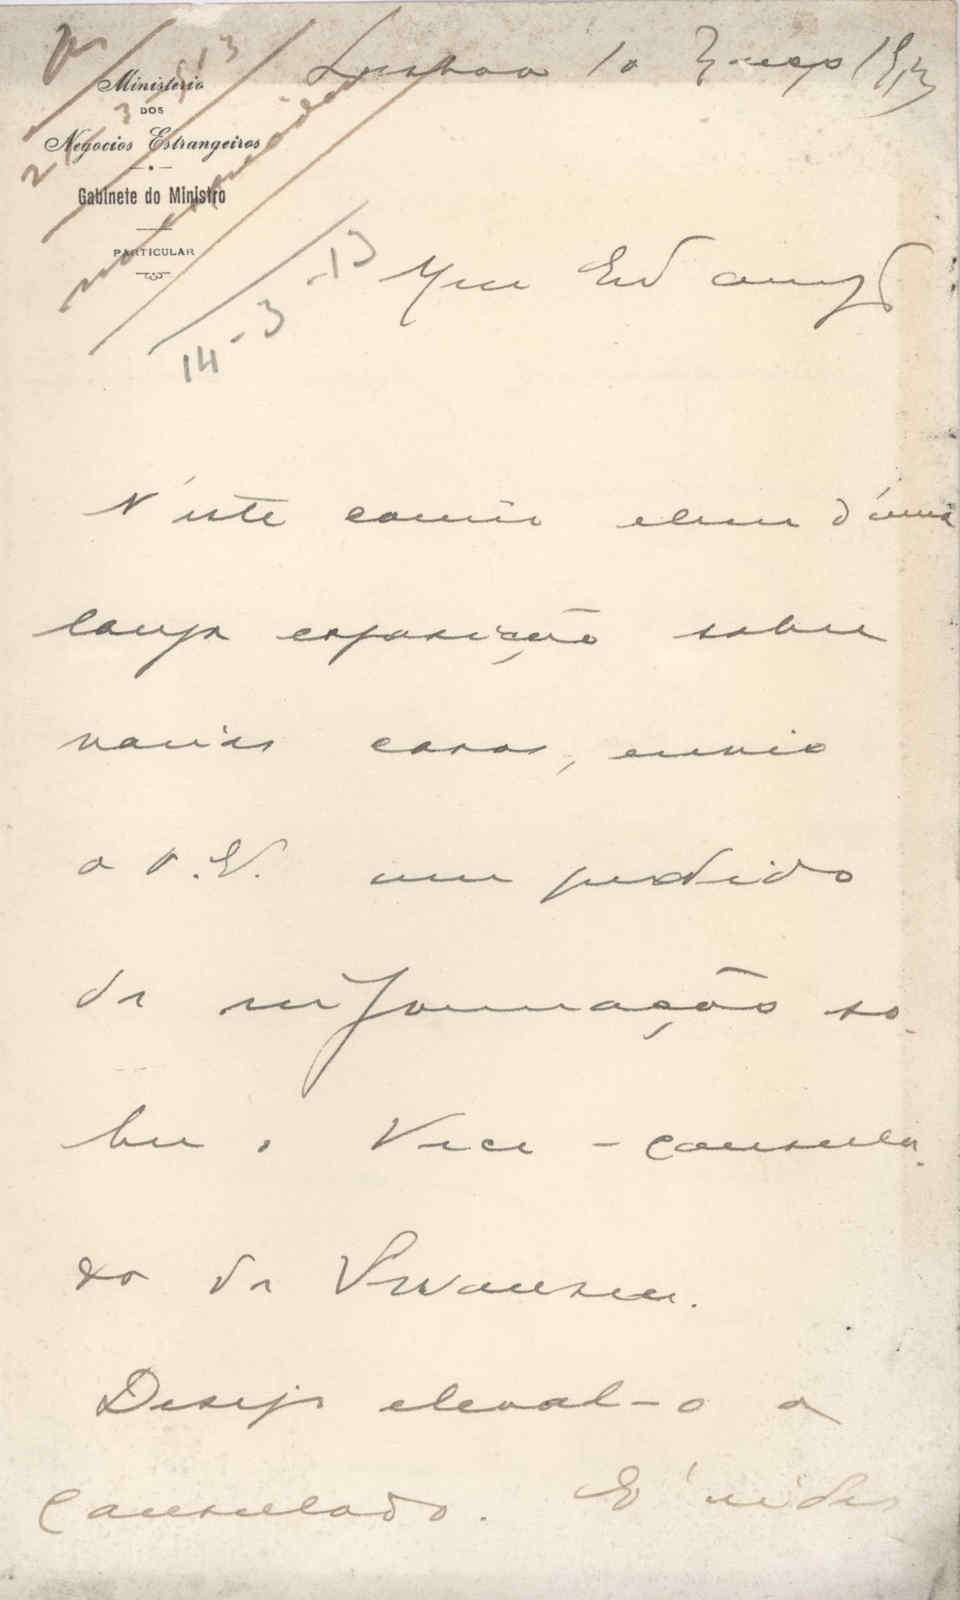 Ministerio
DOS
Negocios Estrangeiros
Gabinete do Ministro
PARTICULAR
14-3-13
Lisboa 10 Março 1913
Meu Exº amigº
N'este correio alem d'uma
longa exposição sobre
varias casos, envio
a V. Ex. um pedido
de informação so-
bre o Vice-consula-
do de Swansea.
Desejo eleval-o a
consulado. E'